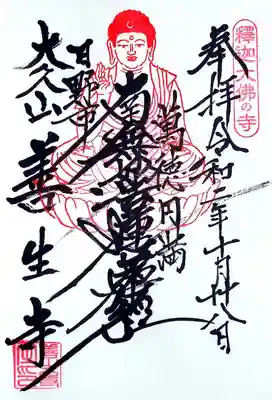 釋迦大佛の寺
奉拝 令和二年十月廿八日
萬徳円満
南無釋迦牟尼佛
日野市
大久山 善生寺